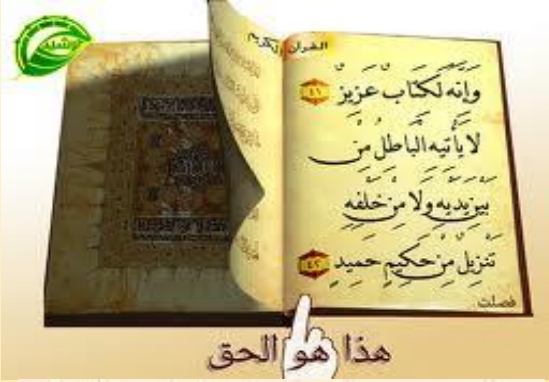 القرآن الكريم
وَإِنَّهُ لَكِتَابٌ عَزِيزٌ ٤١
لا يَأْتِيهِ الباطِلُ مِن
بَيْنِ يَدَيْهِ ولا مِنْ خَلْفِهِ
تَنزِيلٌ مِنْ حَكِيمٍ حَمِيدٍ ٤٢
فصلت
هذا هو الحق